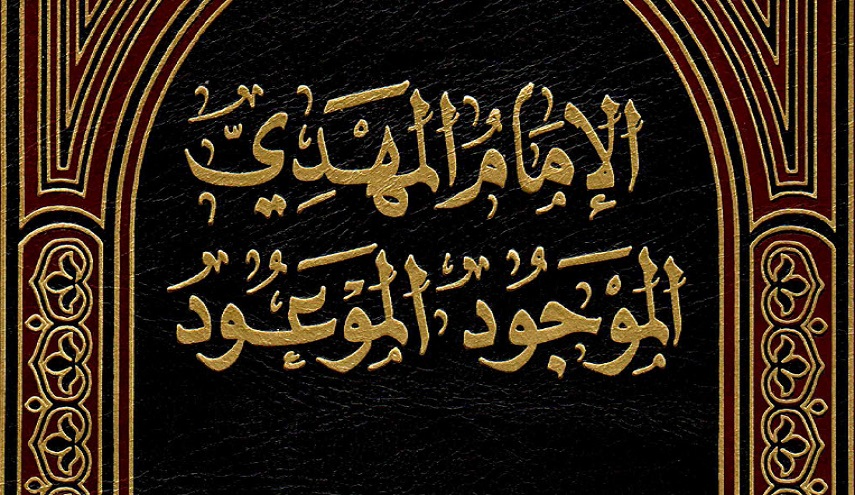 الإِمَامُ المَهْدِيّ
المَوْجُودُ المَوْعُودُ